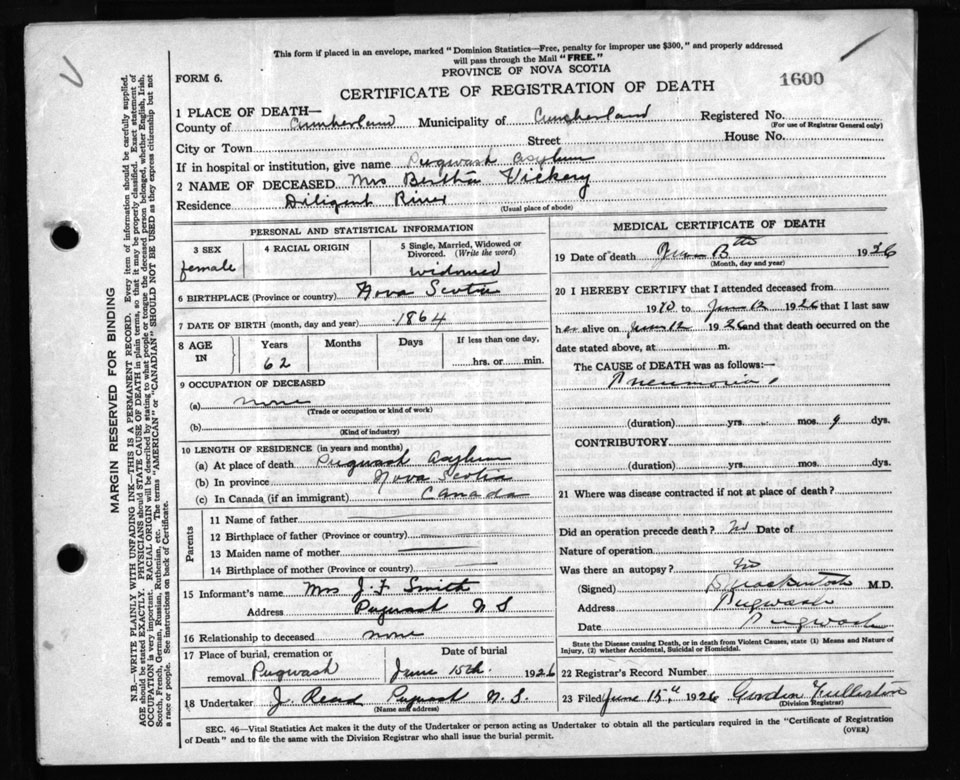 This form if placed in an envelope, marked "Dominion Statistics—Free, penalty for improper use $300," and properly addressed
will pass through the Mail "FREE."
FORM 6.
PROVINCE OF NOVA SCOTIA
CERTIFICATE OF REGISTRATION OF DEATH
1600
1 PLACE OF DEATH—
County of Cumberland Municipality of Cumberland Registered No.
(For use of Registrar General only)
City or Town Street House No.
If in hospital or institution, give name Pugwash Asylum
2 NAME OF DECEASED Mrs Bertha Vickery
Residence Diligent River
(Usual place of abode)
PERSONAL AND STATISTICAL INFORMATION
3 SEX
female
4 RACIAL ORIGIN
5 Single, Married, Widowed or
Divorced. (Write the word)
widowed
6 BIRTHPLACE (Province or country) Nova Scotia
7 DATE OF BIRTH (month, day and year) 1864
8 AGE
IN
Years
62
Months
Days
If less than one day,
hrs. or min.
9 OCCUPATION OF DECEASED
(a) none
(Trade or occupation or kind of work)
(b)
(Kind of industry)
10 LENGTH OF RESIDENCE (in years and months)
(a) At place of death Pugwash Asylum
(b) In province Nova Scotia
(c) In Canada (if an immigrant) Canada
Parents
11 Name of father
12 Birthplace of father (Province or country)
13 Maiden name of mother
14 Birthplace of mother (Province or country)
15 Informant's name Mrs J. F Smith
Address Pugwash N S
16 Relationship to deceased none
17 Place of burial, cremation or
removal Pugwash
Date of burial
June 15th 1926
18 Undertaker J. Read Pugwash N. S.
(Name and address)
MEDICAL CERTIFICATE OF DEATH
19 Date of death June 1926
(Month, day and year)
20 I HEREBY CERTIFY that I attended deceased from
19 to June 12 1926 that I last saw
her alive on June 12 1926 and that death occurred on
date stated above, at m.
The CAUSE of DEATH was as follows:—
Pneumonia
(duration) yrs. mos. 9 dys.
CONTRIBUTORY
(duration) yrs. mos. dys.
21 Where was disease contracted if not at place of death?
Did an operation precede death? No Date of
Nature of operation
Was there an autopsy? No
(Signed) Mackintosh M.D.
Address Pugwash
Date Pugwash
State the Disease causing Death, or in death from Violent Causes, state (1) Means and Nature of
Injury, (2) whether Accidental, Suicidal or Homicidal.
22 Registrar's Record Number
23 Filed June 15th 1926 Gordon Fullerton
(Division Registrar)
SEC. 46—Vital Statistics Act makes it the duty of the Undertaker or person acting as Undertaker to obtain all the particulars required in the "Certificate of Registration
of Death" and to file the same with the Division Registrar who shall issue the burial permit.
(OVER)
MARGIN RESERVED FOR BINDING
N.B.—WRITE PLAINLY WITH UNFADING INK—THIS IS A PERMANENT RECORD. Every item of information should be carefully supplied.
AGE should be stated EXACTLY. PHYSICIANS should STATE CAUSE OF DEATH in plain terms, so that it may be properly classified. Exact statement of
OCCUPATION is very important. RACIAL ORIGIN will be described by stating to what people or tongue the deceased person belonged, whether English, Irish,
Scotch, French, German, Russian, Ruthenian, etc. The terms "AMERICAN" or "CANADIAN" SHOULD NOT BE USED as they express citizenship but not
a race or people. See instructions on back of Certificate.